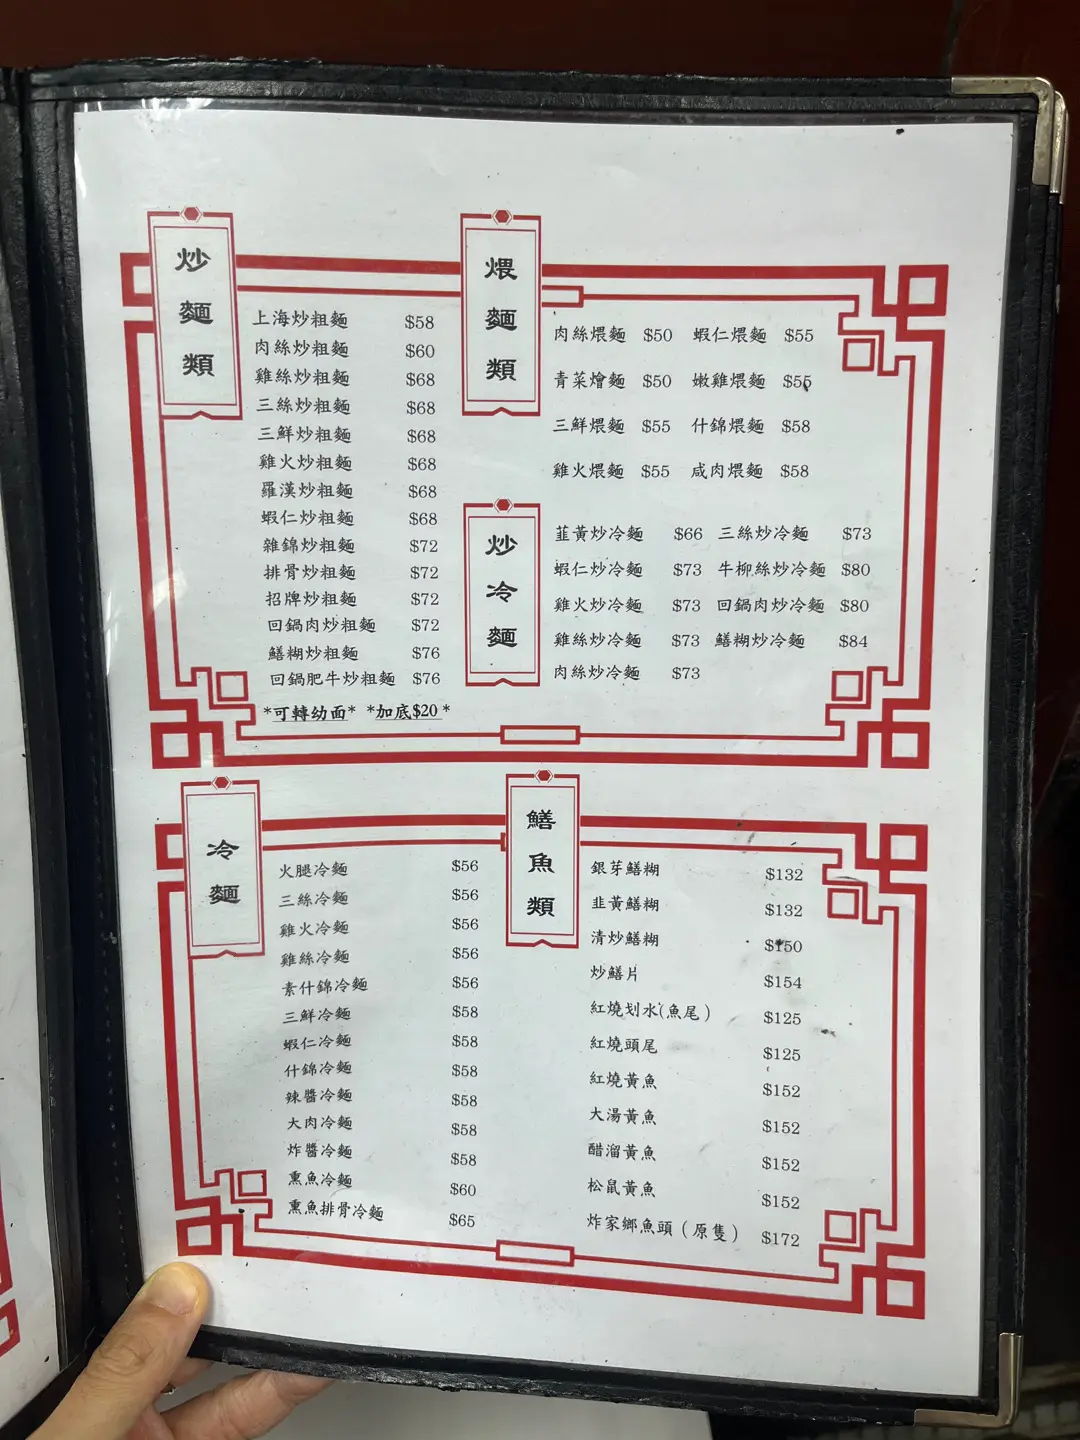 炒麵類
上海炒粗麵 $58
肉絲炒粗麵 $60
雞絲炒粗麵 $68
三絲炒粗麵 $68
三鮮炒粗麵 $68
雞火炒粗麵 $68
羅漢炒粗麵 $68
蝦仁炒粗麵 $68
雜錦炒粗麵 $72
排骨炒粗麵 $72
招牌炒粗麵 $72
回鍋肉炒粗麵 $72
鱔糊炒粗麵 $76
回鍋肥牛炒粗麵 $76
*可轉幼面* *加底$20*
煨麵類
肉絲煨麵 $50 蝦仁煨麵 $55
青菜燴麵 $50 嫩雞煨麵 $55
三鮮煨麵 $55 什錦煨麵 $58
雞火煨麵 $55 咸肉煨麵 $58
炒冷麵
韮黃炒冷麵 $66 三絲炒冷麵 $73
蝦仁炒冷麵 $73 牛柳絲炒冷麵 $80
雞火炒冷麵 $73 回鍋肉炒冷麵 $80
雞絲炒冷麵 $73 鱔糊炒冷麵 $84
肉絲炒冷麵 $73
冷麵
火腿冷麵 $56
三絲冷麵 $56
雞火冷麵 $56
雞絲冷麵 $56
素什錦冷麵 $56
三鮮冷麵 $58
蝦仁冷麵 $58
什錦冷麵 $58
辣醬冷麵 $58
大肉冷麵 $58
炸醬冷麵 $58
熏魚冷麵 $60
熏魚排骨冷麵 $65
鱔魚類
銀芽鱔糊 $132
韭黃鱔糊 $132
清炒鱔糊 $150
炒鱔片 $154
紅燒划水(魚尾) $125
紅燒頭尾 $125
紅燒黃魚 $152
大湯黃魚 $152
醋溜黃魚 $152
松鼠黃魚 $152
炸家鄉魚頭（原隻） $172